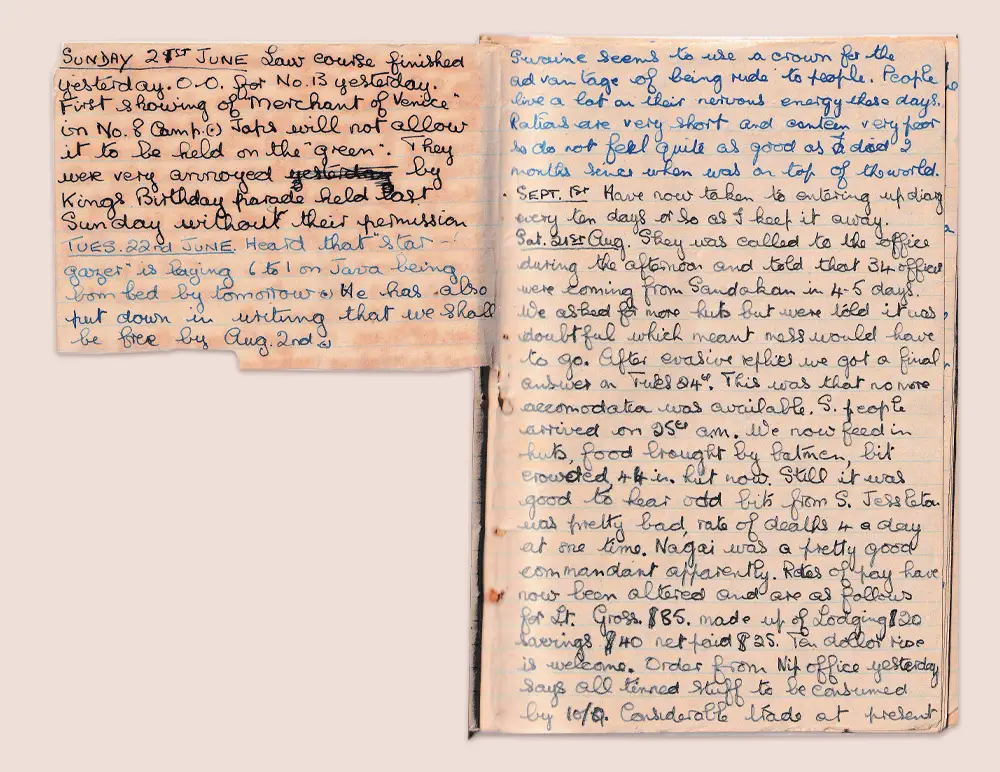 SUNDAY 21ST JUNE Law course finished
yesterday. O.O. for No.13 yesterday.
First showing of "Merchant of Venice"
in No. 8 Camp. Japs will not allow
it to be held on the "green". They
were very annoyed yesterday by
Kings Birthday parade held last
Sunday without their permission
TUES. 22nd JUNE. Heard that "star-
gazer" is laying 6 to 1 on Java being
bombed by tomorrow. He has also
put down in writing that we shall
be free by Aug. 2nd.
Swaine seems to use a crown for the
advantage of being rude to people. People
live a lot on their nervous energy these days.
Rations are very short and canteen very poor
so do not feel quite as good as I did 2
months since when was on top of the world.
SEPT. 1ST Have now taken to entering up diary
every ten days or so as I keep it away.
Sat. 21ST Aug. Shey was called to the office
during the afternoon and told that 34 officers
were coming from Sandakan in 4-5 days.
We asked for more huts but were told it was
doubtful which meant mess would have
to go. After evasive replies we got a final
answer on Tues 24th. This was that no more
accomodation was available. S. people
arrived on 25th am. We now feed in
huts, food brought by batmen, bit
crowded, 44 in hut now. Still it was
good to hear odd bits from S. Jessleton
was pretty bad, rate of deaths 4 a day
at one time. Nagai was a pretty good
commandant apparently. Rates of pay have
now been altered and are as follows
for Lt. Gross. $85. made up of Lodging $20
savings $40 net paid $25. Ten dollar rise
is welcome. Order from Nip office yesterday
says all tinned stuff to be consumed
by 10/9. Considerable trade at present